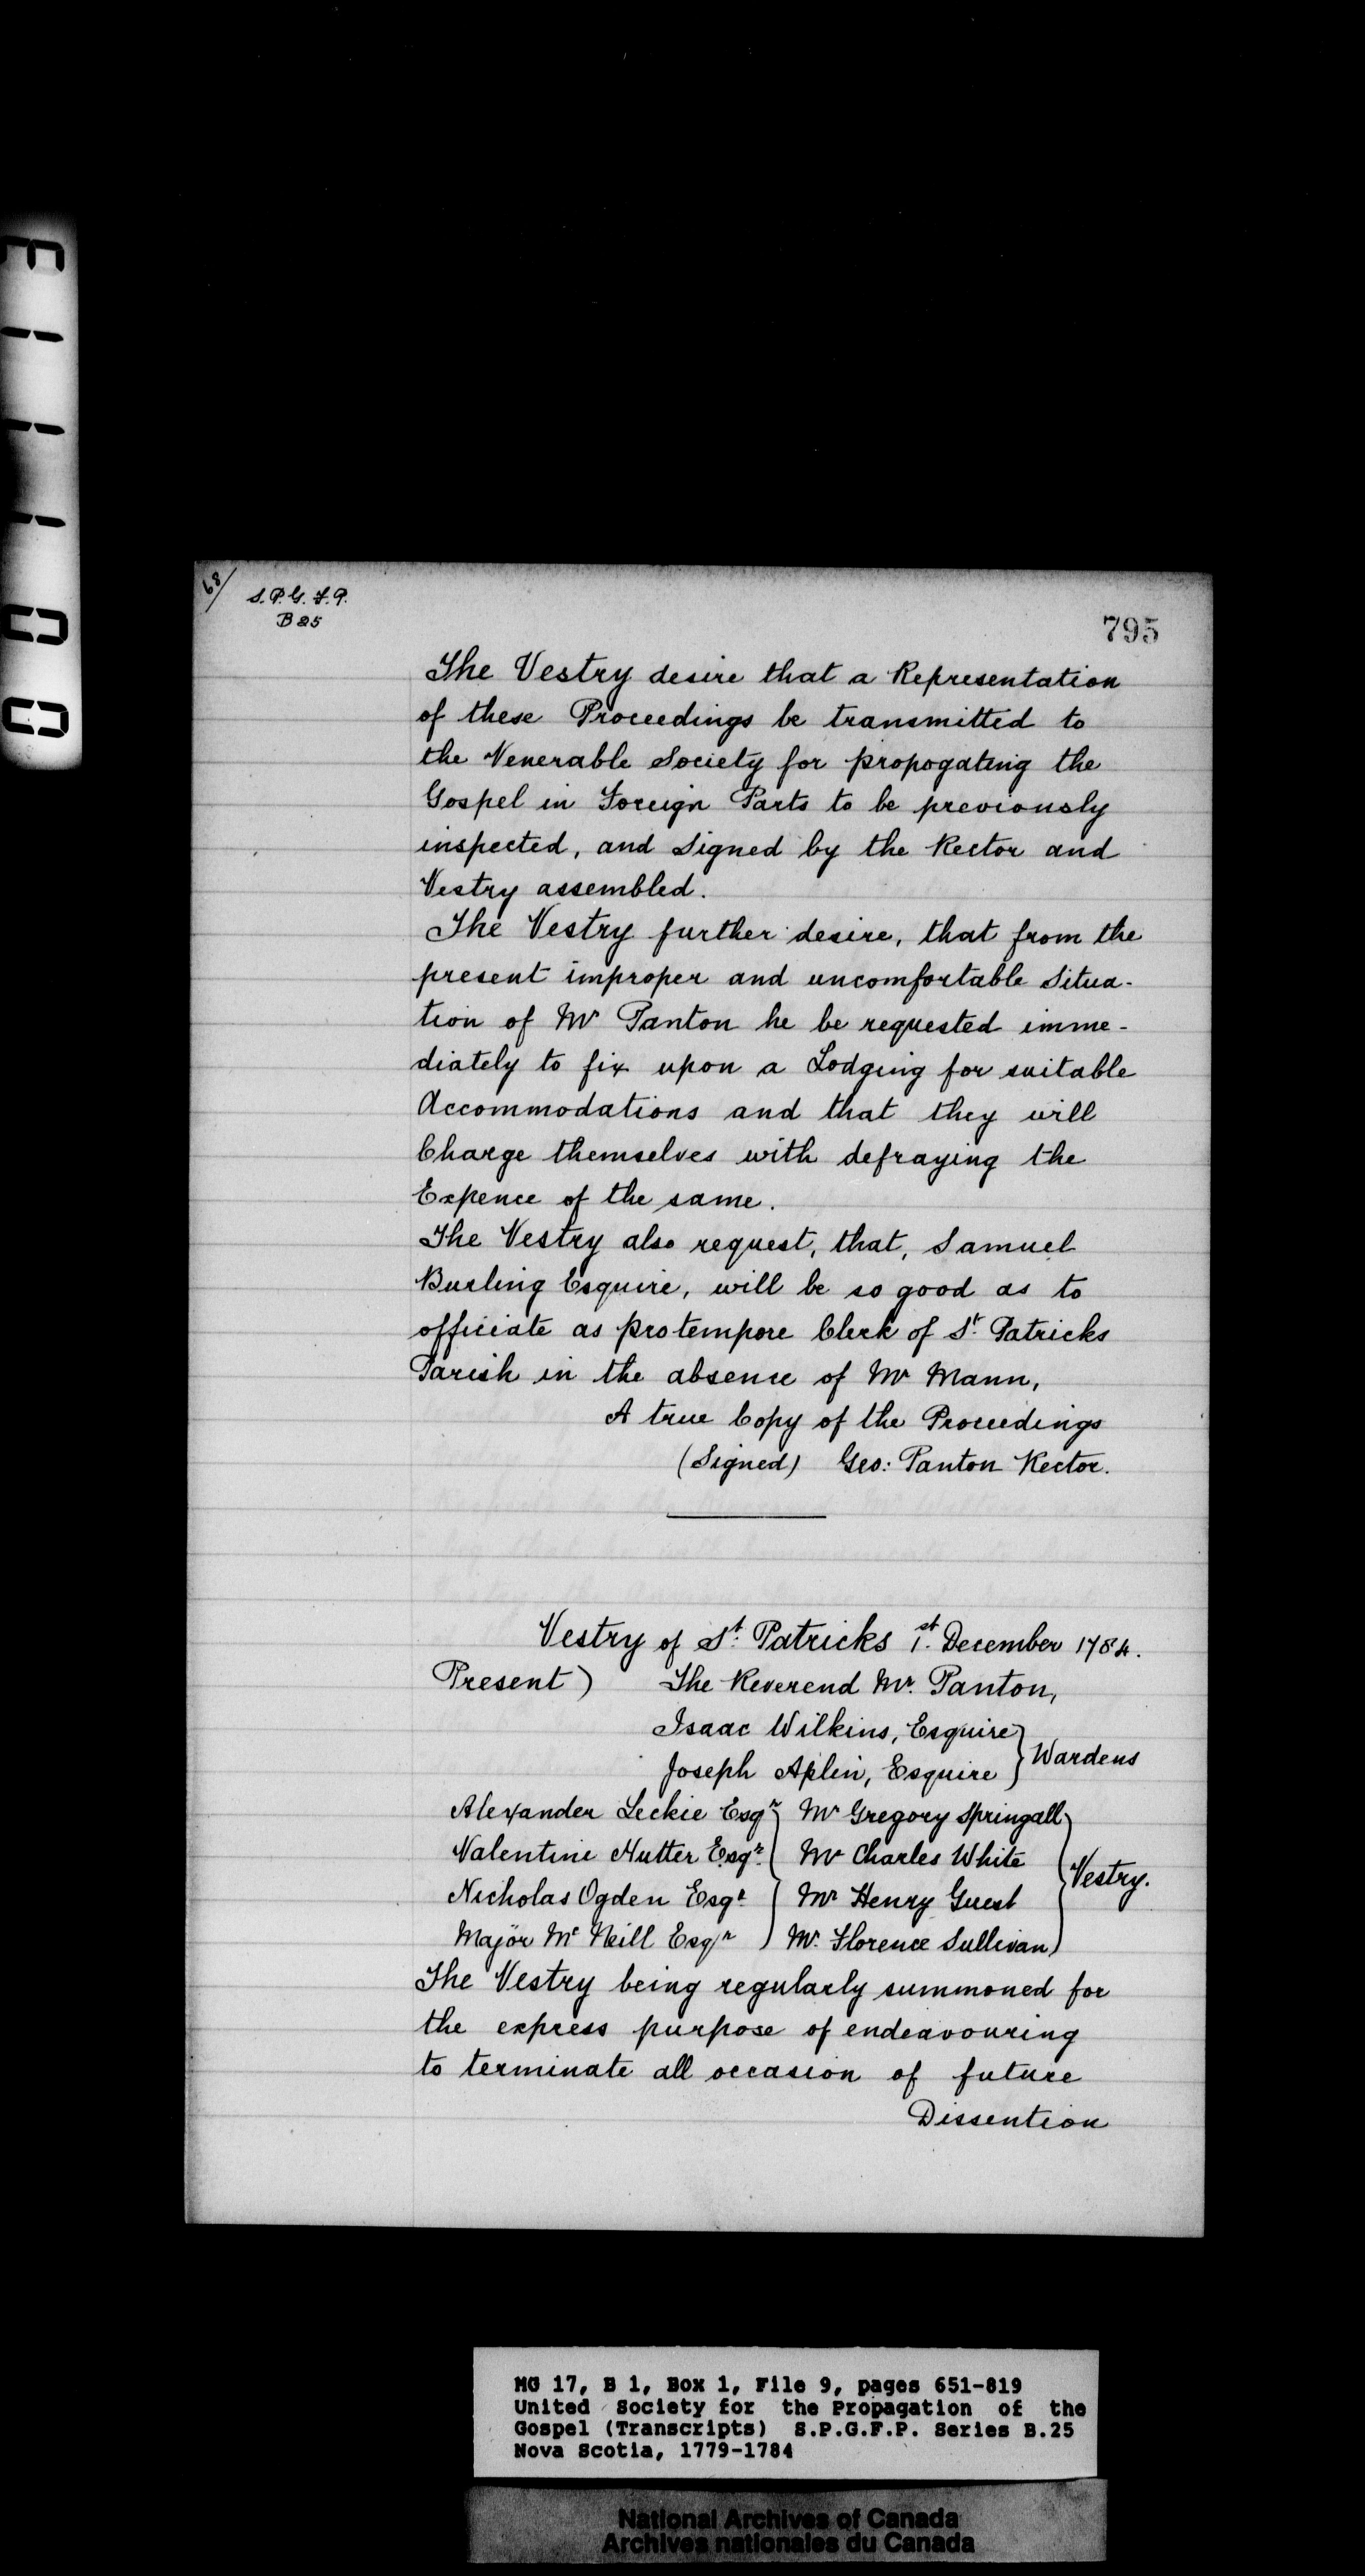 68/
S.P.G.F.P.
B 25
795
The Vestry desire that a Representation
of these Proceedings be transmitted to
the Venerable Society for propogating the
Gospel in Foreign Parts to be previously
inspected, and Signed by the Rector and
Vestry assembled.
The Vestry further desire, that from the
present improper and uncomfortable Situa-
tion of Mr Panton he be requested imme-
diately to fix upon a Lodging for suitable
Accommodations and that they will
Charge themselves with defraying the
Expence of the same.
The Vestry also request, that, Samuel
Burling Esquire, will be so good as to
officiate as protempore Clerk of St. Patricks
Parish in the absence of Mr Mann,
A true Copy of the Proceedings
(Signed) Geo: Panton Rector.
Vestry of St. Patricks 1st. December 1784.
Present) The Reverend Mr. Panton,
Isaac Wilkins, Esquire
Joseph Aplin, Esquire } Wardens
Alexander Leckie Esqr } Mr Gregory Springall
Valentine Nutter Esqr. Mr Charles White
Nicholas Ogden Esqr. Mr Henry Guest } Vestry.
Major Mc Neill Esqr Mr. Florence Sullivan
The Vestry being regularly summoned for
the express purpose of endeavouring
to terminate all occasion of future
Dissention
MG 17, B 1, Box 1, File 9, pages 651-819
United Society for the Propagation of the
Gospel (Transcripts) S.P.G.F.P. Series B.25
Nova Scotia, 1779-1784
National Archives of Canada
Archives nationales du Canada